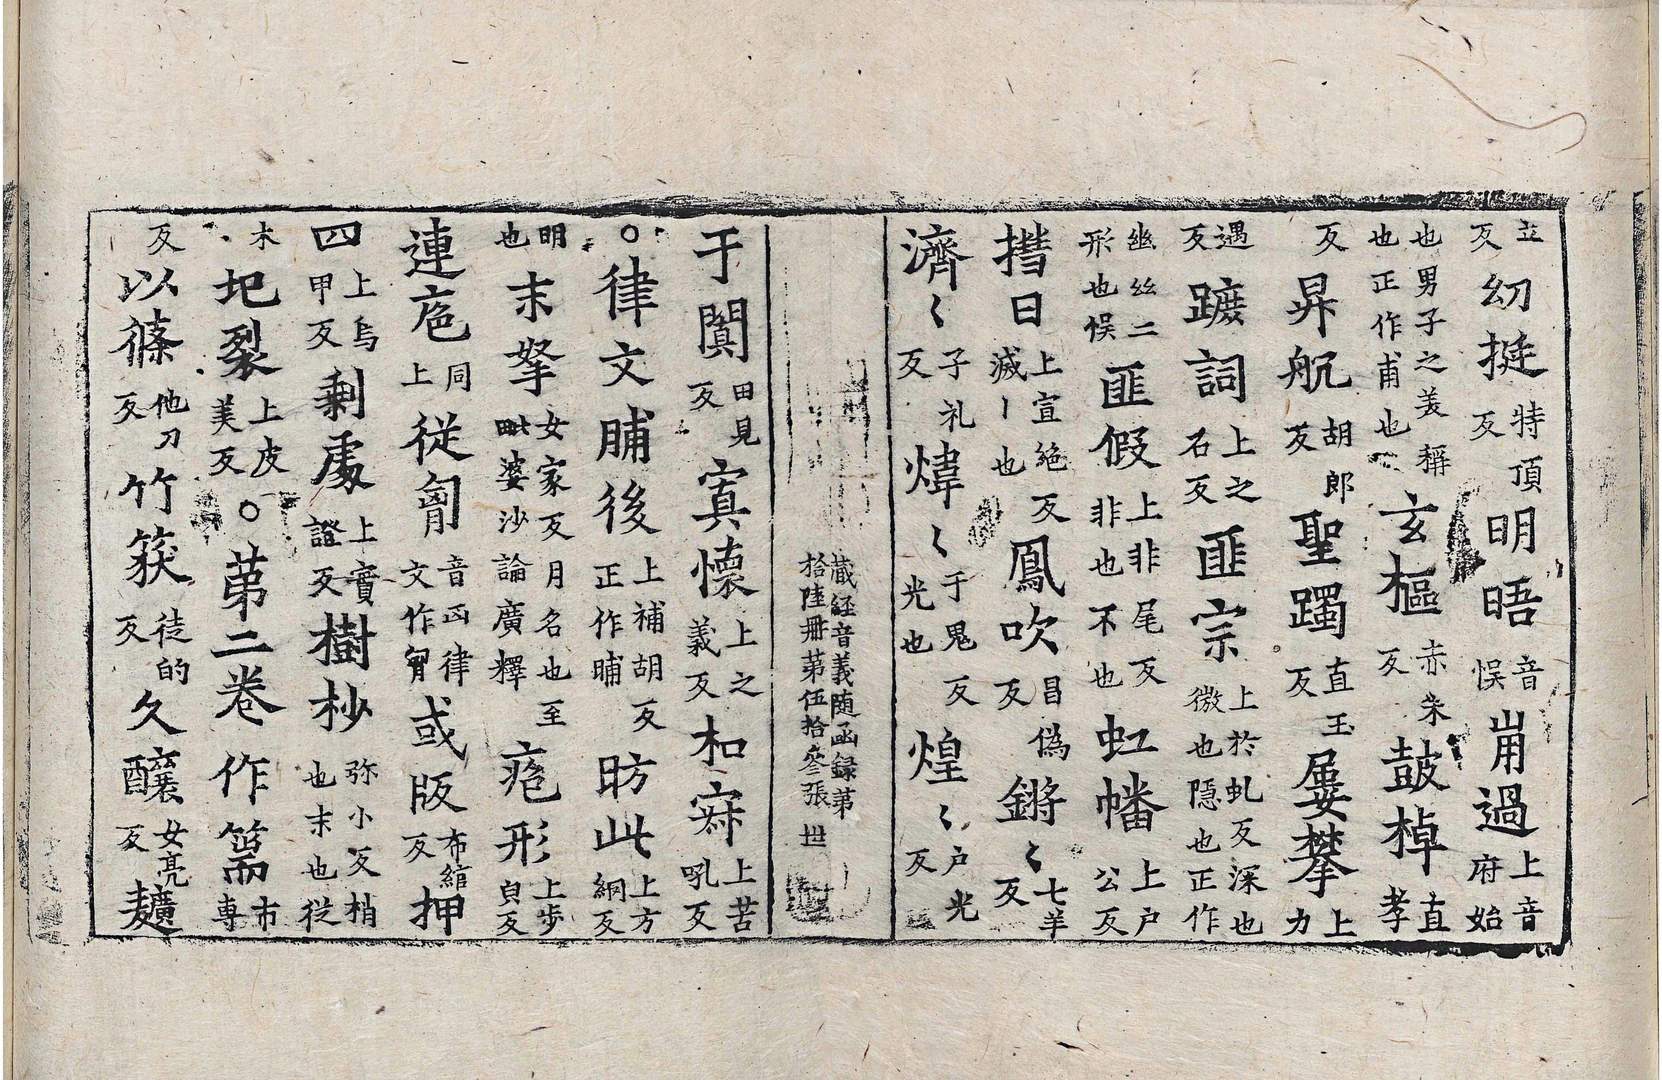 立反幼挺特頂反明晤音悮崩過上音府始
也男子之美稱也正作甫也玄樞赤朱反鼓棹直孝
反昇航胡郎反聖躅直玉反屢攀上力
遇反蹠詞上之石反匪宗上於虬反深也微也隱也正作
幽丝二形也悮匪假上非尾反非也不也虹幡上户公反
㨗日上宣絶反滅丨也鳳吹昌偽反鏘〻七羊反
濟〻子礼反煒〻于鬼反光也煌〻户光反
藏経音義随函録第拾陸冊第伍拾參張 世
于闐田見反寘懷上之義反和㝮上苦吼反
○律文脯後上補胡反正作晡昉此上方綱反
明也末拏女家反月名也至毗婆沙論廣釋疱形上步皃反
連庖同上從匈音函律文作胷或版布綰反押
四上烏甲反剰處上實證反樹杪弥小反梢也末也従
木圯裂上皮美反○苐二卷作篅市専
反以篠他刀反竹篍徒的反久釀女亮反麴